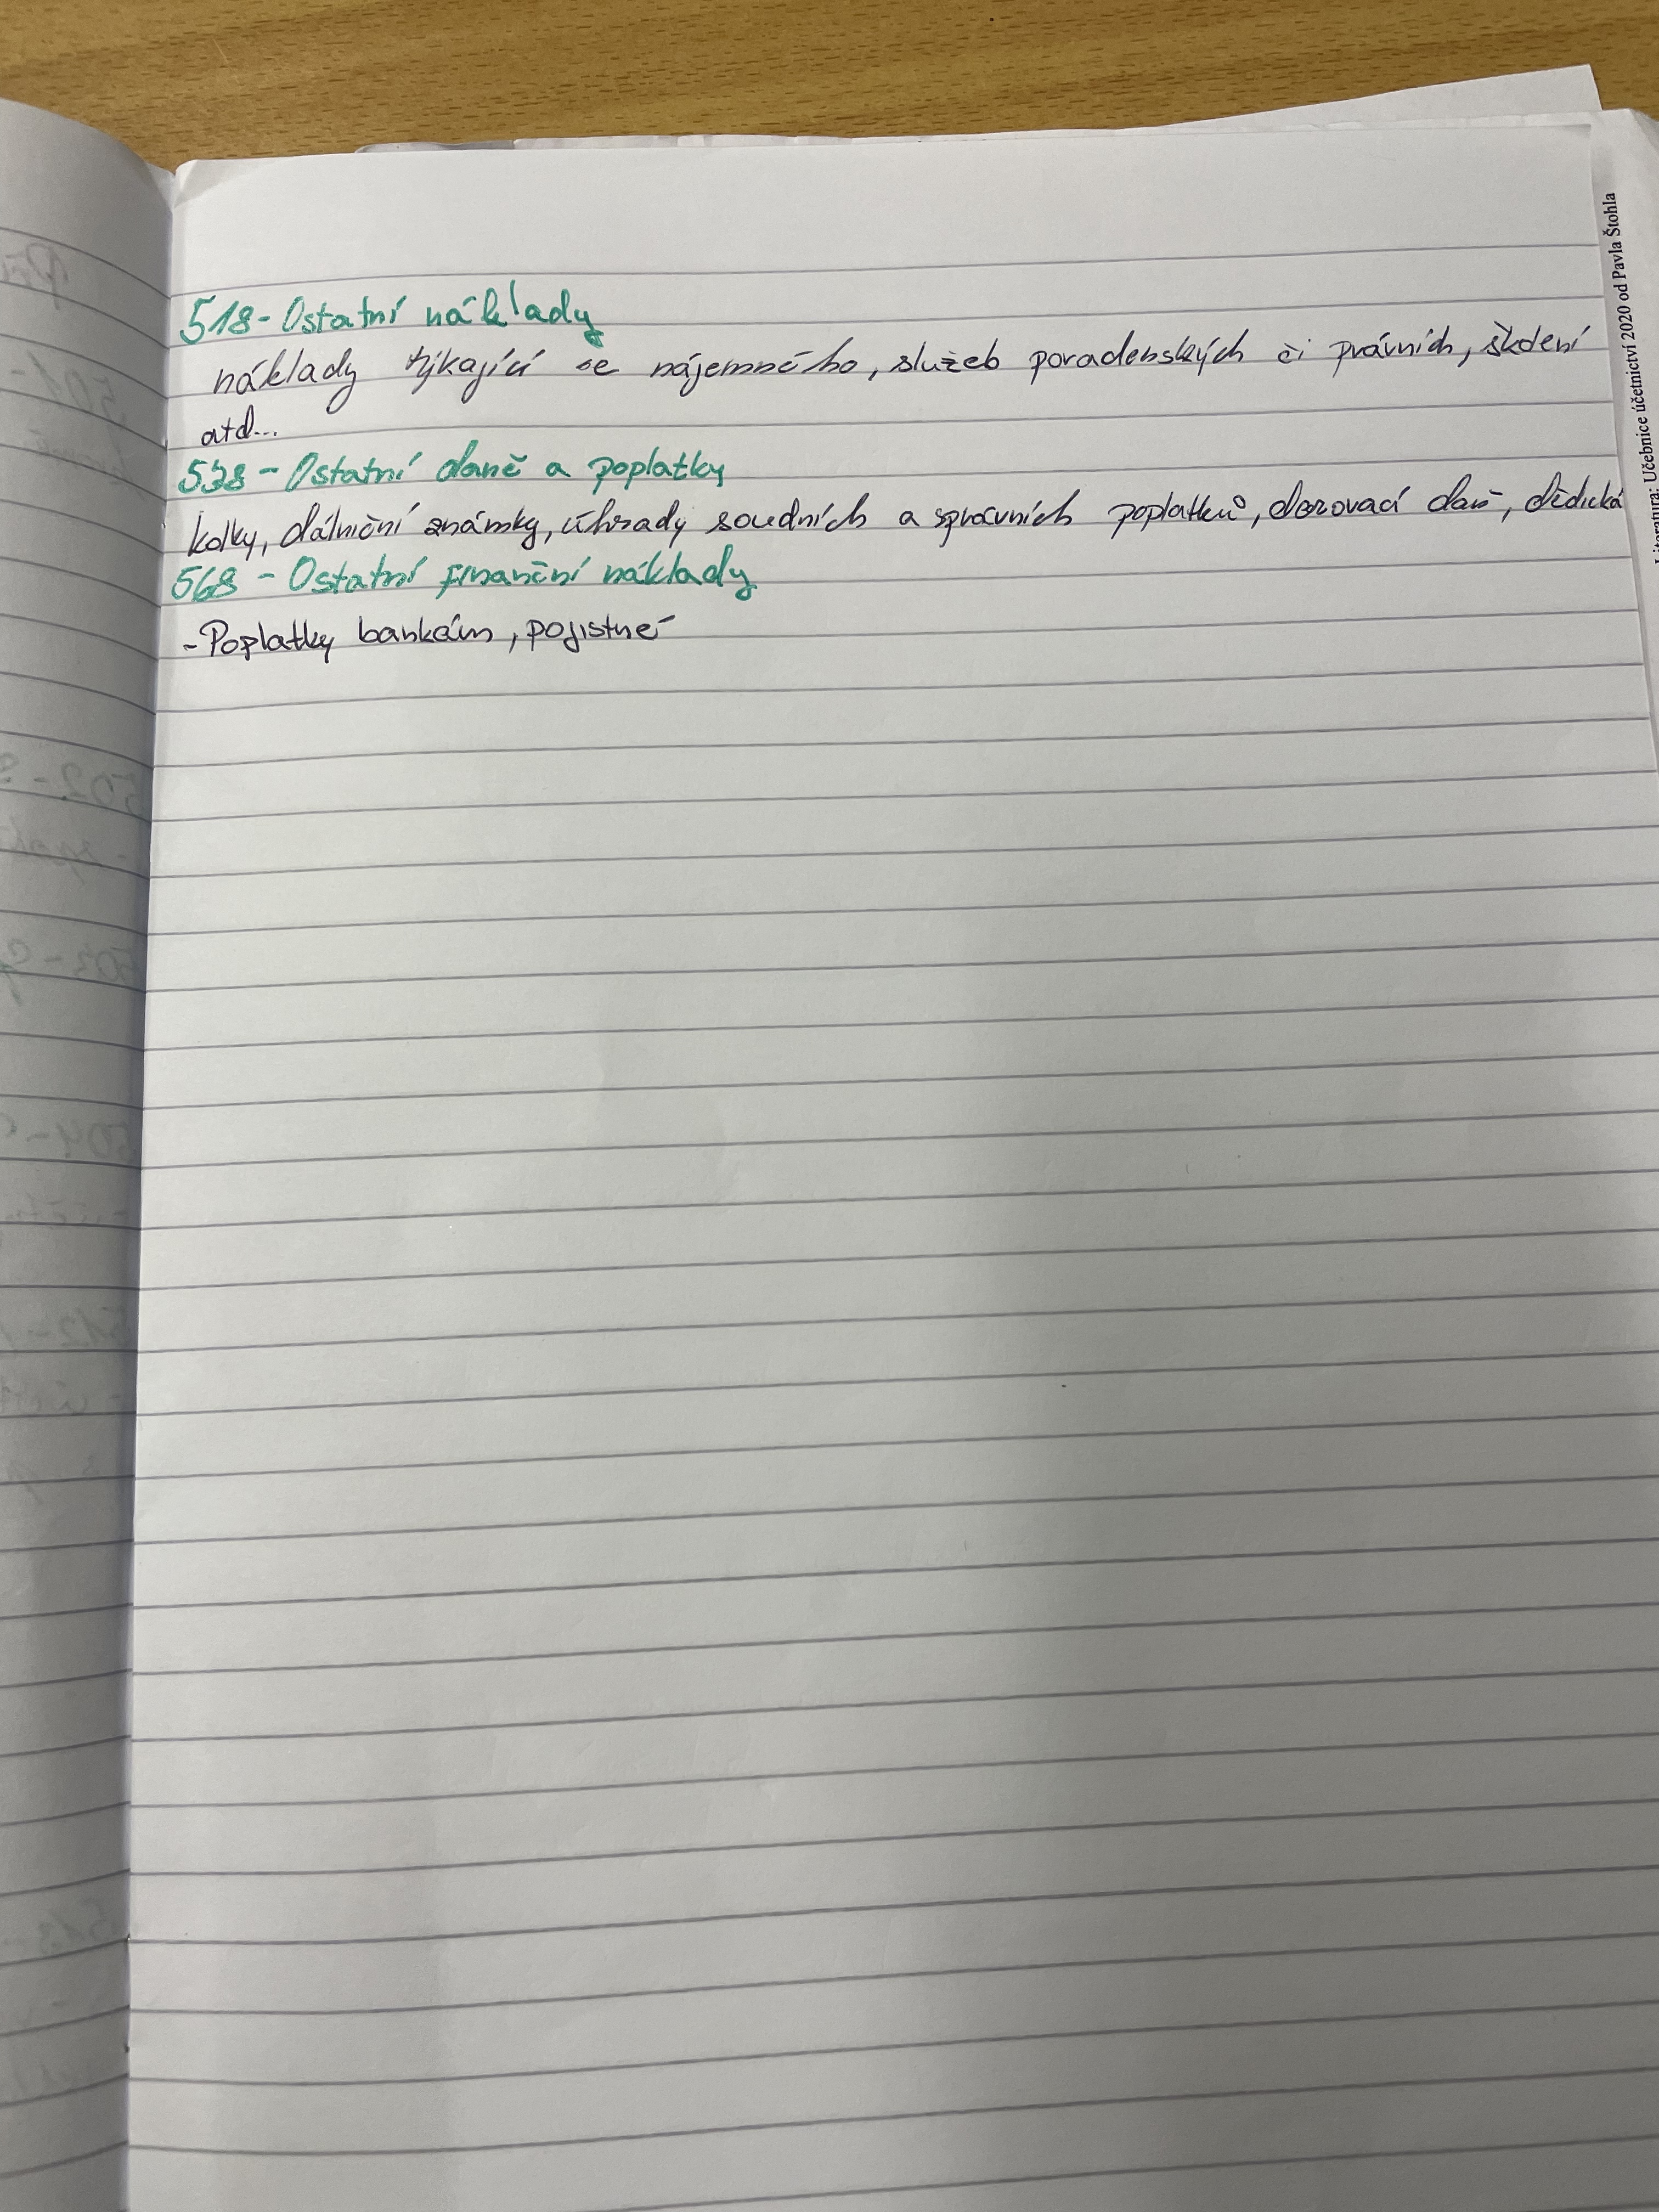 518 - Ostatní náklady
náklady týkající se nájemného, služeb poradenských či právních, školení
atd...
538 - Ostatní daně a poplatky
kolky, dálniční známky, úhrady soudních a správních poplatků, darovací daň, dědická
568 - Ostatní finanční náklady
- Poplatky bankám, pojistné
Literatura: Učebnice účetnictví 2020 od Pavla Štohla